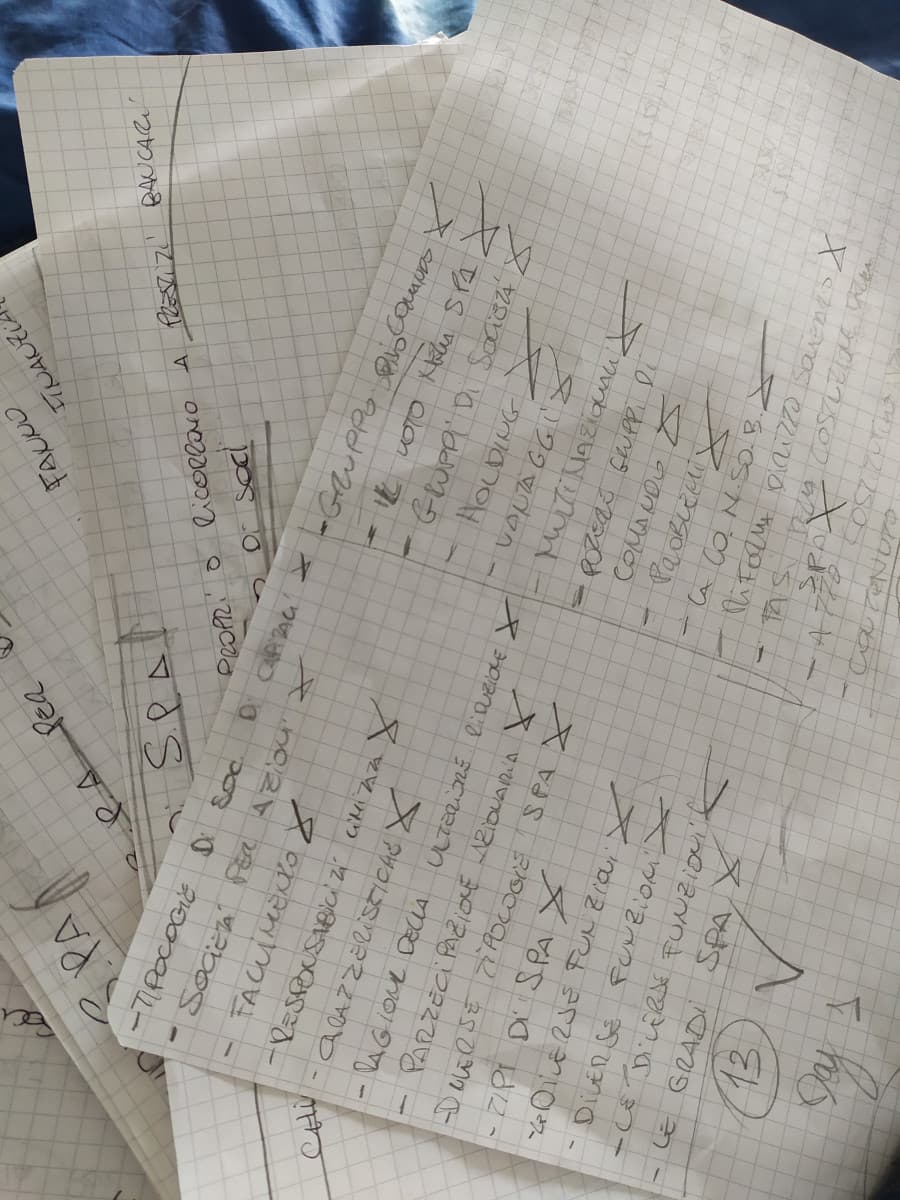 - TIPOLOGIE DI SOC DI CAPITALI X
- SOCIETÁ PER AZIONI X
- FALLIMENTO X
- RESPONSABILITÁ LIMITATA X
- CARATTERISTICHE X
- RAGIONE DELLA ULTERIORE X
- PARTECIPAZIONE AZIONARIA X
- DIVERSE TIPOLOGIE SPA X
- TIPI DI SPA X
- LE DIVERSE FUNZIONI X
- DIVERSE FUNZIONI X
- LE DIVERSE FUNZIONI X
- LE GRADI SPA X
13
Day 1
- GRUPPO X
- IL VOTO NELLA SPA X
- GRUPPI DI SOCIETÁ X
- HOLDING X
- VANTAGGI X
- MULTINAZIONALI X
- POTERE GRUPPI DI
COMANDO X
- PROBLEMI X
- LA CO.N.SO.B. X
- RIFORMA DIRITTO SOCIETARIO X
- FASI
SPA X
- ATTO COSTITUTIVO
- CONTENUTO
PROPRI O RICORRONO A PRESTITI BANCARI
DI SOCI
S.P.A
PER
FINANZIAR